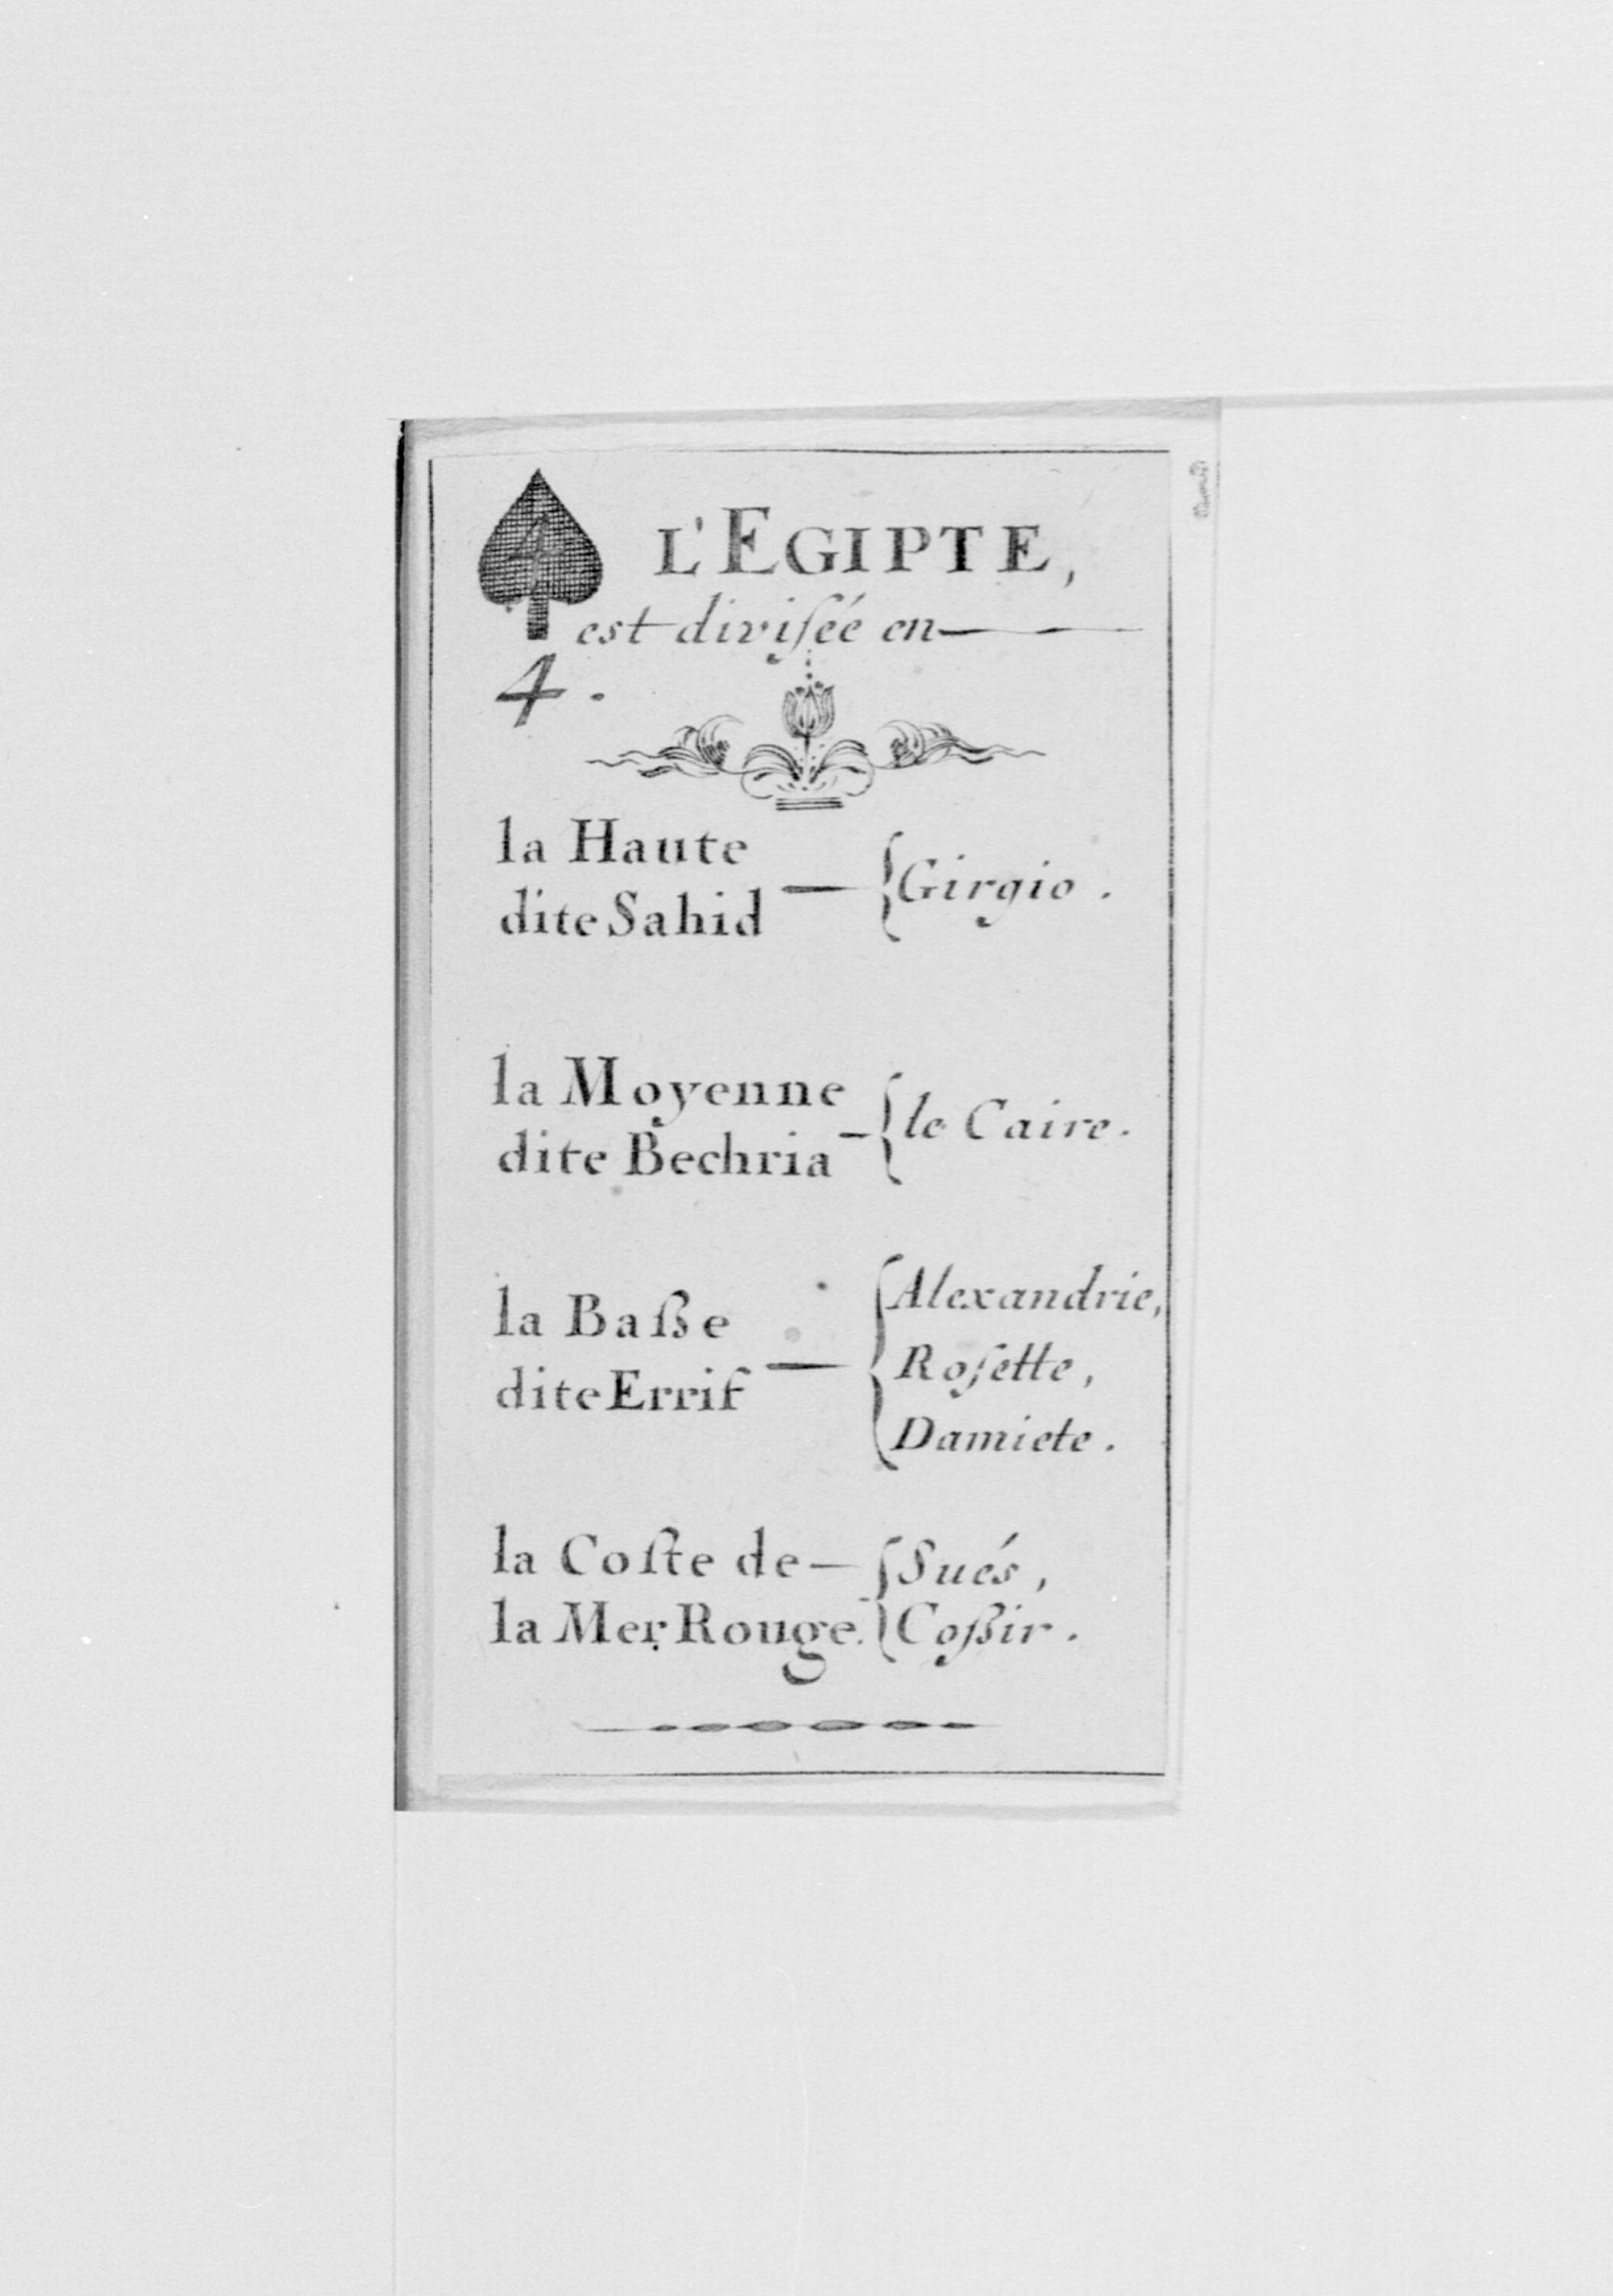 4
L'EGIPTE,
est diviſéé en
4.
la Haute
dite Sahid
Girgio.
la Moyenne
dite Bechria
le Caire.
la Baße
dite Errif
Alexandrie,
Roſette,
Damiete.
la Coſte de
la Mer Rouge.
Sués,
Coßir.